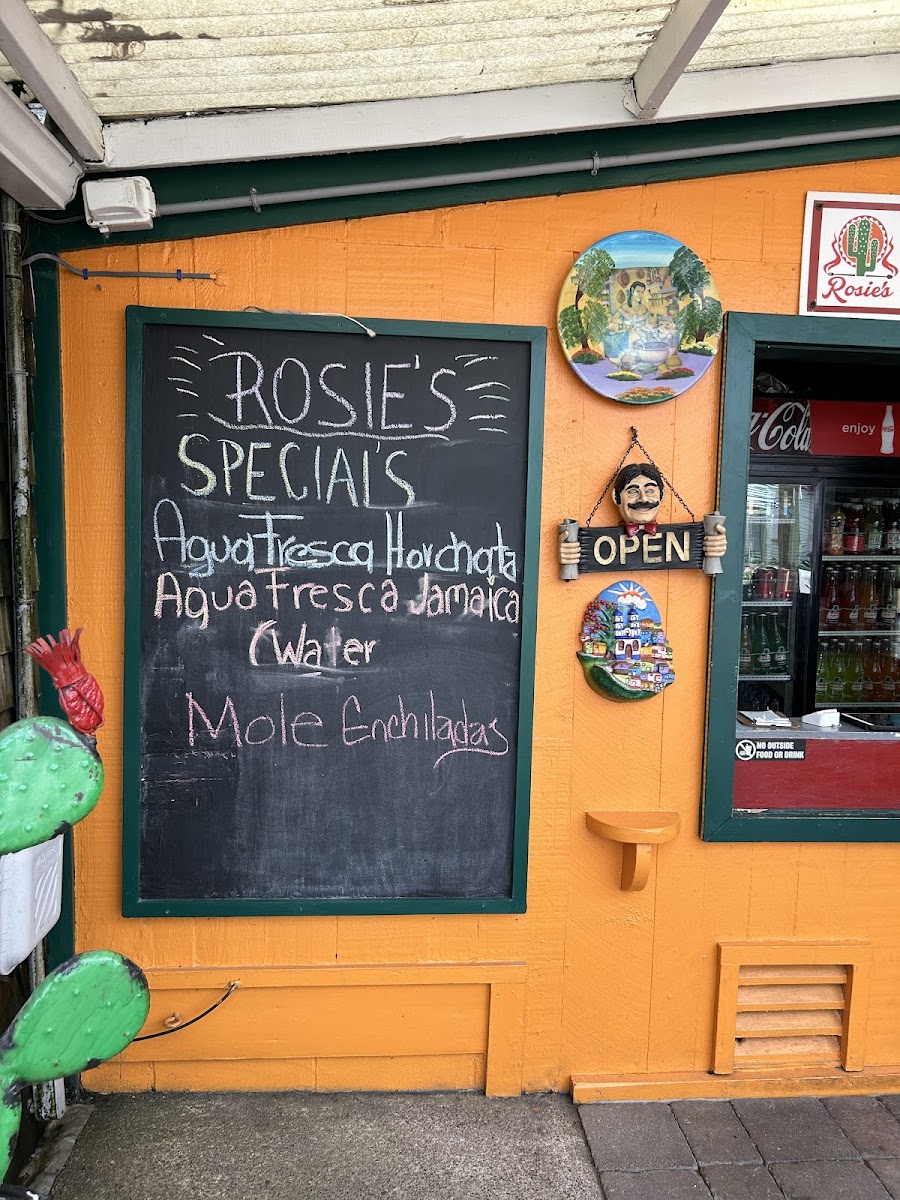 ROSIE'S
SPECIAL'S
Agua Fresca Horchata
Agua Fresca Jamaica
(Water
Mole Enchiladas
OPEN
Rosie's
Coca-Cola
enjoy
NO OUTSIDE
FOOD OR DRINK